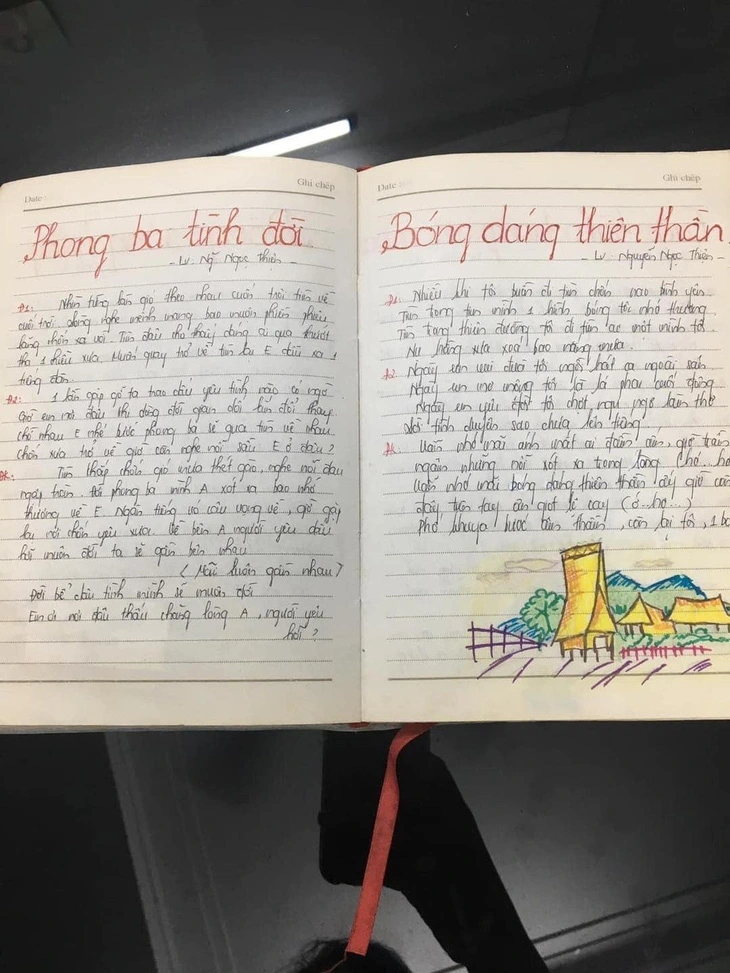 Date
Ghi chép
Phong ba tình đời
- LV. Ng̃ Ngọc Thiện -
Đ1: Nhìn từng làn gió theo nhau cuối trời tìm về
cuối trời, dòng nghe mênh mang bao muộn phiền, phiêu
lãng chốn xa vời. Tìm đâu cho thấy dáng ai qua thướt
tha 1 chiều xưa. Muốn quay trở về tìm lại E dấu xa 1
tiếng đàn.
Đ2: 1 lần gặp gỡ ta trao dấu yêu tình nào có ngờ
Giờ em nơi đâu thu dòng đời gian dối lìm đổi thay
chờ nhau E nhé bước phong ba sẽ qua tìm về nhau
chốn xưa trở về giờ còn nghe nỗi sầu E ở đâu?
ĐK: Tìm thấp chốn gió mưa thét gào, nghe nỗi đau
ngày tràn. Đời phong ba mình A xót xa bao nhớ
thương về E. Ngàn tiếng va câu vọng về, giờ gặp
lại nơi chốn yêu xưa. Về bên A người yêu dấu
hỡi muôn đời ta sẽ gần bên nhau
(Mãi luôn gần nhau)
Đời bể dâu tình mình sẽ muôn đời
Em ơi nơi đâu thấu chăng lòng A, người yêu
hỡi?
Date
Ghi chép
Bóng dáng thiên thần
- LV. Nguyễn Ngọc Thiện -
Đ1: Nhiều khi tôi buồn đi tìm chốn nao bình yên
Tìm trong tim mình 1 hình bóng tôi nhớ thương
Tìm trong thiên đường tôi đi tìm ai một mình tôi
Nụ hồng xưa xoá bao nắng mưa.
Đ2: Ngày em vui đùa tôi ngồi hát ca ngoài sân
Ngày em mơ mộng tôi là lá phai cuối đông
Ngày em yêu đời tôi chợt ngu ngơ làm thơ
Lời tình duyên sao chưa lên tiếng.
ĐK: Vẫn nhớ mãi ánh mắt ai đằm ấm, giờ trầm
ngâm những nỗi xót xa trong lòng (hó..ho
Vẫn nhớ mãi bóng dáng thiên thần ấy giờ còn
đây trên tay ân giọt lệ cay (ó..ho...)
Phố khuya bước bần thần, còn lại tôi, 1 bó